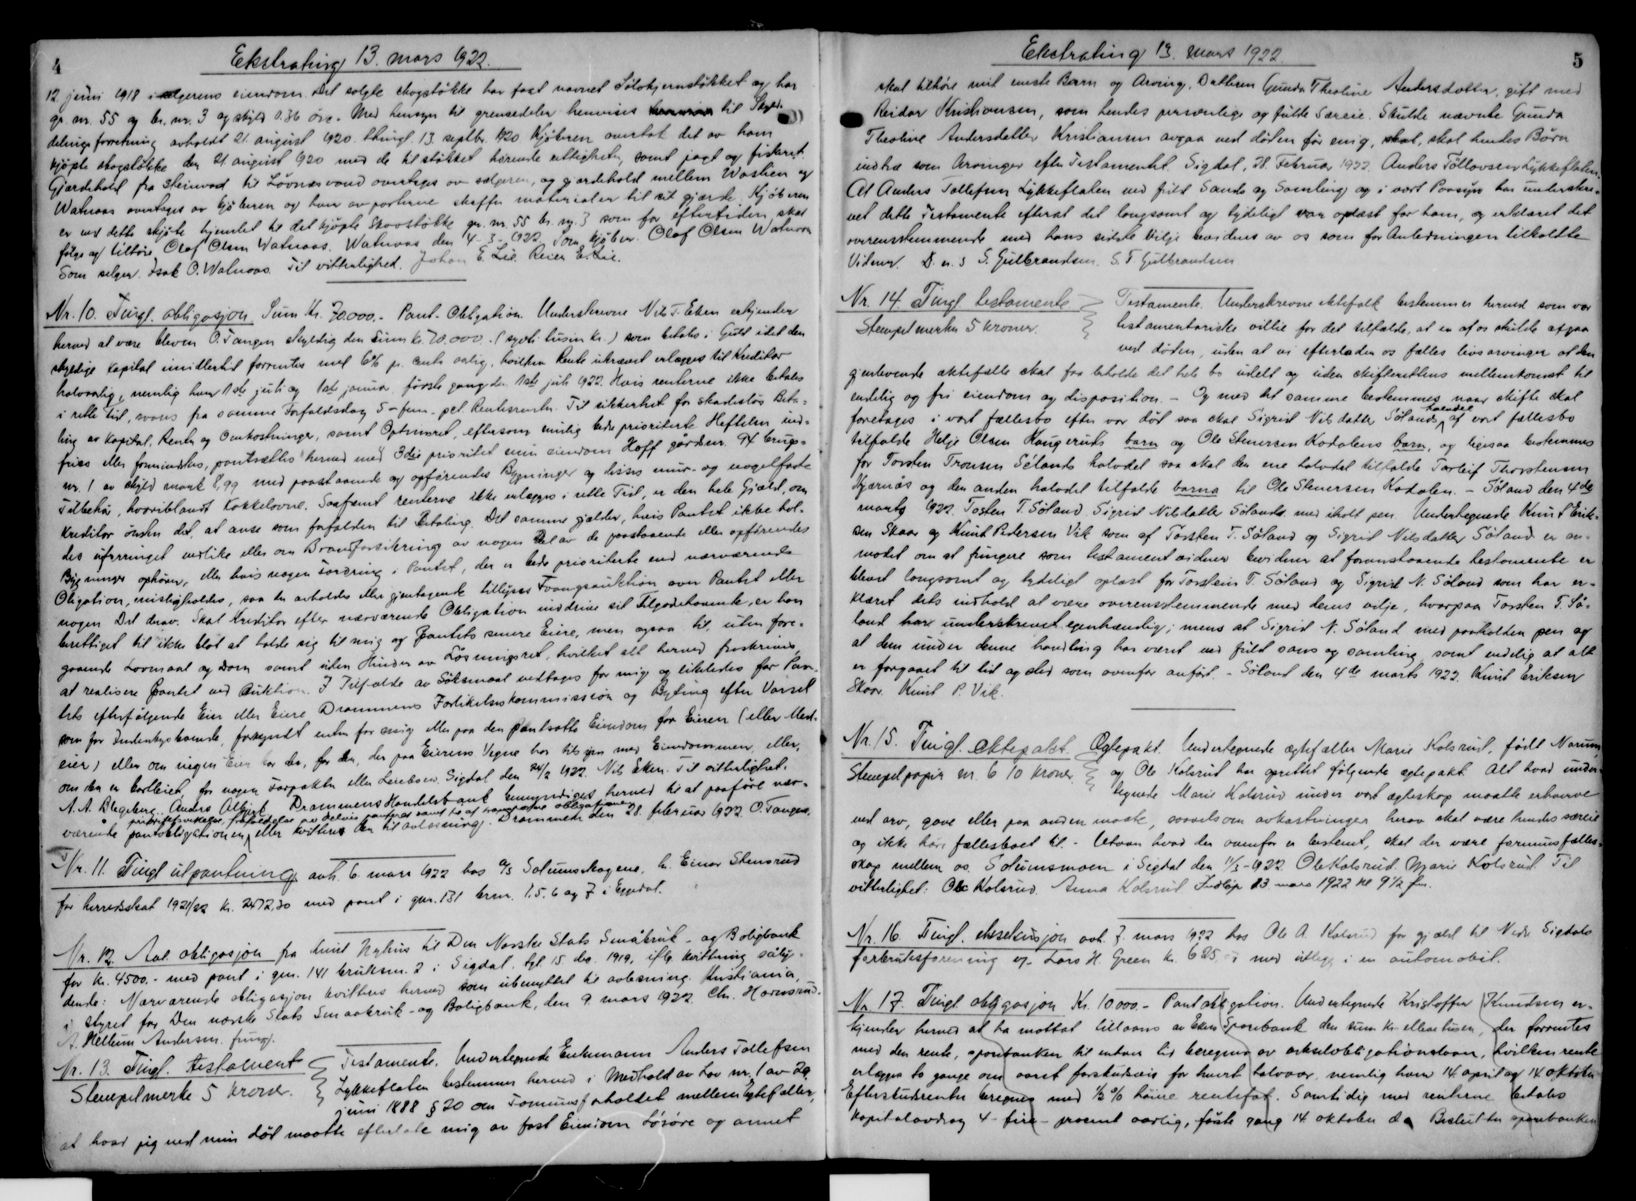 4
Ekstrating 13. mars 1922.
12 juni 1918 i selgerens eiendom. Det solgte skogstykke har faat navnet Sölvtjernstykket og har
gr. nr. 55 og br. nr. 3 og skyld 0.36 öre. Med hensyn til grensedeler henvises til Skyld-
delingsforretning avholdt 21. august 1920. thingl. 13 septbr. 1920. Kjöberen overtok det av ham
kjöpte skogstykke den 21 august 1920 med de til stykket hörende rettigheter, samt jagt og fiskeret.
Gjærdehold fra Steinvad til Lövnæsvand overtages av sælgeren, og gjærdehold mellem Waslien og
Watnaas overtages av kjöberen og hver av parterne skaffer materialer til sit gjærde. Kjöberen
er ved dette skjöte hjemlet til det kjöpte Skovstykke gr. nr. 55 br. nr. 3 som for eftertiden skal
fölge og tilhöre Olaf Olsen Watnaas. Watnaas den 4-3-1922. Som kjöber. Olaf Olsen Watnaas
Som selger. Isak O. Watnaas. Til vitterlighed. Johan E. Lie. Reier E. Lie.
Nr. 10. Tingl. obligasjon Sum Kr. 70.000.- Pant-Obligation. Underskrevne Nils T. Eken erkjender
herved at være bleven O. Tangen skyldig den Sum kr. 70.000.- (sytti tusin kr.) som betales i Guld idet den
skyldige Kapital imidlertid forrentes med 6% pr. cento aarlig, hvilken Rente ukrævet erlægges til Kreditor
halvaarlig, nemlig hver 1ste juli og 1ste januar, förste gang den 1ste juli 1922. Hvis renterne ikke betales
i rette tid, svares fra samme Forfaldsdag 5-fem- pct. Rentesrente. Til sikkerhet for skadeslös Beta-
ling av Kapital, Renter og Omkostninger, samt Optrinsret, eftersom mulig bedre prioriterte Heftelser ind-
fries eller formindskes, pantsættes herved med 3die prioritet min eiendom Hoff gaardsnr. 94 bruks-
nr. 1 av skyld mark 8,99 med paastaaende og opförendes Bygninger og disses mur- og nagelfaste
Tilbehör, hvoriblandt Kakkelovne. Saafremt renterne ikke erlægges i rette Tid, er den hele Gjæld, om
Kreditor önsker det, at anse som forfalden til Betaling. Det samme gjælder, hvis Pantet ikke hol-
des uforringet vedlike eller om Brandforsikring av nogen Del av de paastaaende eller opförendes
Bygninger ophörer, eller hvis nogen Fordring i Pantet, der er bedre prioriterte end nærværende
Obligation, misligholdes, saa der avholdes eller gjentagende tillyses Tvangsauktion over Pantet eller
nogen Del derav. Skal Kreditor efter nærværende Obligation inddrive sit Tilgodehavende, er han
berettiget til ikke blot at holde sig til mig og Pantets senere Eiere, men ogsaa til, uten fore-
gaaende Lovmaal og Dom samt uten Hinder av Lösningsret, hvilket alt herved fraskrives,
at realisere Pantet ved Auktion. I Tilfælde av Söksmaal vedtages for mig og likeledes for Pan-
tets efterfölgende Eier eller Eiere Drammens Forlikelseskommission og Byting efter Varsel
som for Indenbysboende, forkyndt enten for mig eller paa den pantsatte Eiendom for Eieren (eller Med-
eier) eller om ingen Eier bor der, for den, der paa Eierens Vegne har tilsyn med Eiendommen, eller,
om den er bortleiet, for nogen Forpakter eller Leieboer. Sigdal den 24/2 1922. Nils Eken. Til vitterlighet.
A. A. Anders Albjerk. Drammens Handelsbank bemyndiges herved til at paaföre nær-
værende pantobligation eller kvittere den til avlæsning. Drammen den 28. februar 1922 O. Tangen.
Nr. 11. Tingl utpantning avh. 6. mars 1922 hos A/S Solumskogene. h. Einar Stensrud
for herredsskat 1921/22 kr. 2472,30 med pant i gnr. 131 brnr. 1.5.6 og 7 i Eggedal.
Nr. 12. Avl. obligasjon fra Knut Nyhus til Den Norske Stats Småbruk- og Boligbank
for Kr. 4500.- med pant i gnr. 141 bruksnr. 2 i Sigdal. tgl. 15. des. 1919, iflg. kvittning sålyd-
dende: Nærværende obligasjon kvitteres herved som ubenyttet til avlesning. Kristiania,
i styret for Den norske Stats Smaabruk- og Boligbank, den 9 mars 1922. Chr. Horsrud.
A. Mellum Andersen. fung.
Nr. 13. Tingl. testament Testamente. Undertegnede Enkemann Anders Tollefsen
Stempelmerke 5 kroner. Lykkeflaten bestemmer herved i Medhold av Lov nr. 1 av 29
juni 1888 § 20 om Formuesforholdet mellem Egtefæller,
at hvad jeg ved min död maatte efterlate mig av fast Eiendom Lösöre og annet
5
Ekstrating 13. mars 1922.
skal tilhöre mit eneste Barn og Arving, Datteren Gunda Theoline Andersdatter, gift med
Reidar Kristiansen, som hendes personlige og fulde Særeie. Skulde nævnte Gunda
Theoline Andersdatter Kristiansen avgaa ved döden för mig, skal hendes Börn
indtræ som Arvinger efter Testamentet. Sigdal, 28. Februar 1922. Anders Tollovsen Lykkeflaten.
At Anders Tollefsen Lykkeflaten ved fuld Sands og Samling og i vort Paasyn har underskre-
vet dette Testamente efterat det langsomt og tydeligt var oplæst for ham, og erklæret det
overensstemmende med hans sidste Vilje bevidnes av os som for Anledningen tilkaldte
Vidner. D. u. s G. Gulbrandsen. S. T. Gulbrandsen
Nr. 14. Tingl. testamente Testamente. Underskrevne ektefolk bestemmer herved som vor
Stempelmerke 5 kroner. testamentariske villie for det tilfælde, at en af os skulde afgaa
ved döden, uden at vi efterlader os fælles livsarvinger at den
gjenlevende ektefælle skal faa beholde det hele bo udelt og uden skifterettens mellemkomst til
endelig og fri eiendom og disposition. - Og med det samme bestemmes naar skifte skal
foretages i vort fællesbo efter vor död saa skal Sigrid Nilsdatter Sölands halvdel af vort fællesbo
tilfalde Helge Olsen Kongeruds barn og Ole Stenersen Kodalens barn, og ligesaa bestemmes
for Torsten Tronsen Sölands halvdel saa skal den ene halvdel tilfalde Torleif Thorstensen
Kjærnås og den anden halvdel tilfalde barna til Ole Stenersen Kodalen. - Söland den 4de
marts 1922. Tosten T. Söland. Sigrid Nilsdatter Sölande med iholt pen Undertegnede Knut Erik-
sen Skaar og Knut Pedersen Vik som af Torsten T. Söland og Sigrid Nilsdatter Söland er an-
modet om at fungere som testamentvidner bevidner at foranstaaende testamente er
blevet langsomt og tydeligt oplæst for Torstein T. Söland og Sigrid N. Söland som har er-
klæret dets indhold at være overensstemmende med deres vilje, hvorpaa Torsten T. Sö-
land have underskrevet egenhændig; mens at Sigrid N. Söland med paaholden pen og
at dem under denne handling har været ved fuld sans og samling samt endelig at alt
er foregaaet til tid og sted som ovenfor anfört. - Söland den 4de marts 1922. Knut Eriksen
Skaar. Knut P. Vik.
Nr. 15. Tingl. ektepakt. Egtepakt. Undertegnede ægtefæller Marie Kolsrud, födt Narum,
Stempelpapir nr. 6 10 kroner og Ole Kolsrud har oprettet fölgende egtepakt. Alt hvad under-
tegnede Marie Kolsrud under vort ægteskap maatte erhverve
ved arv, gave eller paa anden maate, saavelsom avkastninger herav skal være hendes særeie
og ikke höre fællesboet til. - Utover hvad der ovenfor er bestemt, skal der være formuesfælles-
skap mellem os. Solumsmoen i Sigdal den 11/3-1922. Ole Kolsrud. Marie Kolsrud Til
vitterlighet: Ole Kolsrud. Anna Kolsrud Indløp 13 mars 1922 kl 9 1/2 fm.
Nr. 16. Tingl. eksekusjon avh. 7. mars 1922 hos Ole A. Kolsrud for gjæld til Nedr Sigdals
forbruksforening v. Lars H. Green kr. 685. med utlegg i en automobil.
Nr. 17. Tingl obligasjon Kr. 10000.- Pantobligation. Undertegnede Kristoffer Knudsen er-
kjender herved at ha mottat tillaans av Eken Sparebank den sum kr. ellevetusen, der forrentes
med den rente, sparebanken til enhver tid beregner av vekselobligationslaan, hvilken rente
erlægges to gange om aaret forskudsvis for hvert halvaar, nemlig hver 14. april og 14. oktober
Efterskudsrenter beregnes med 1/2% höiere rentefot. Samtidig med renterne betales
kapitalavdrag 4-fire- prosent aarlig, förste gang 14. oktober d.a Beslutter sparebanken